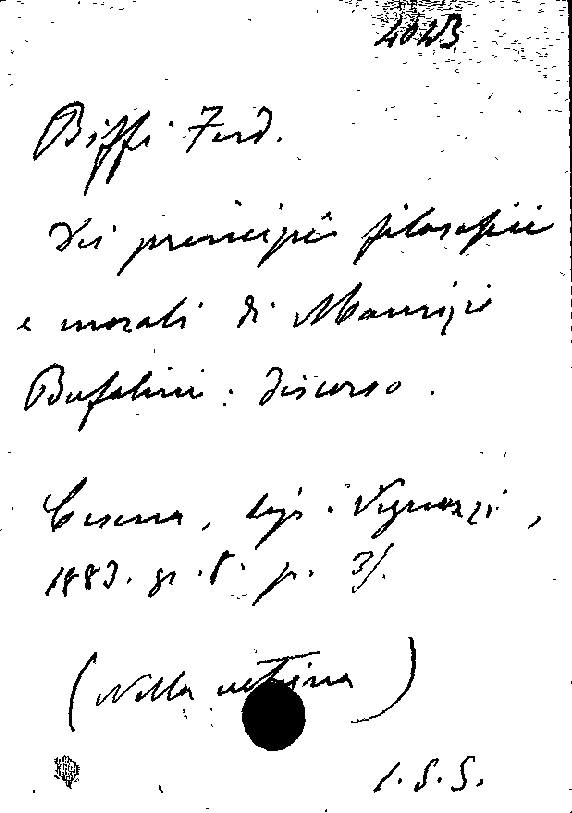 Biffi Ferd.
Dei principii filosofici
e morali di Maurizio
Bufalini: discorso.
Cesena, tip. Vignuzzi,
1883. gr. 8. p. 31.
(Nella vetrina)
I.S.S.